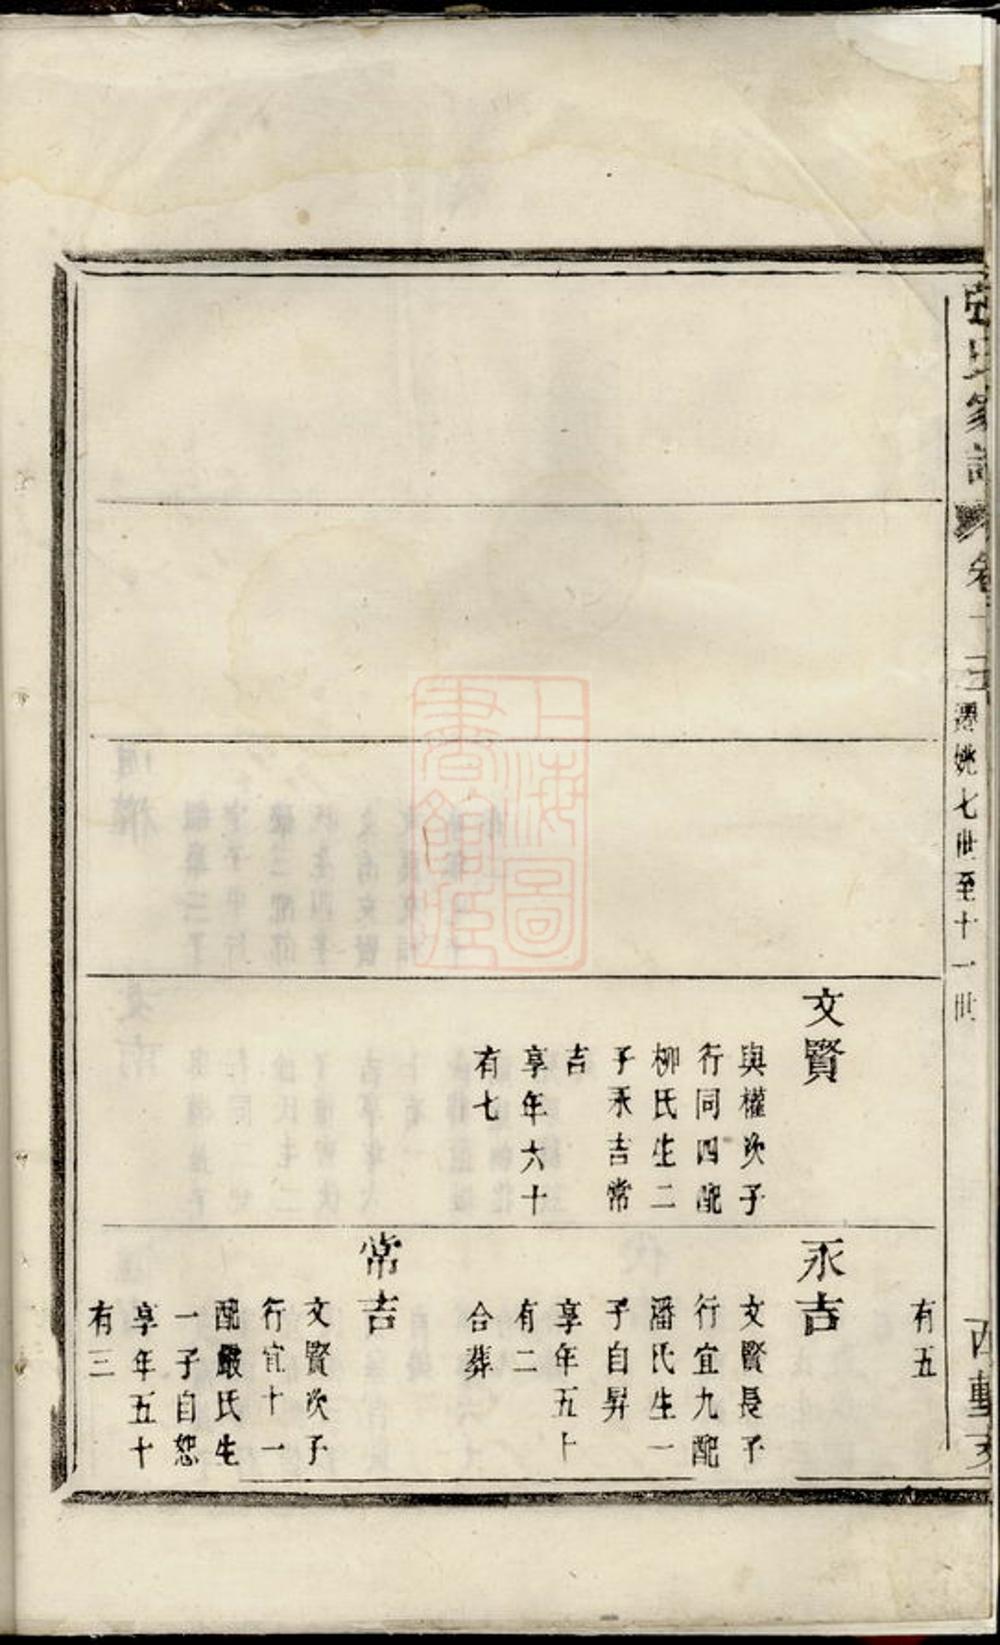 氏家
卷十三
遷姚七世至十一世
文賢
與權次子
行同四配
柳氏生二
子永吉常
吉
享年六十
有七
有五
永吉
文賢長子
行宜九配
潘氏生一
子自昇
享年五十
有二
合葬
常吉
文賢次子
行宜十一
配嚴氏生
一子自恕
享年五十
有三
上海圖
書館藏